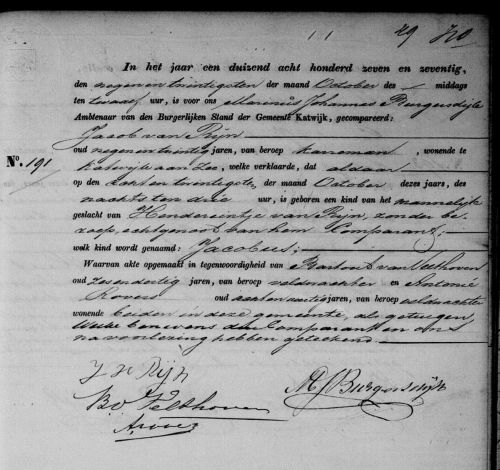 29
In het jaar een duizend acht honderd zeven en zeventig,
den negen en twintigsten der maand October des middags
ten twaalf uur, is voor ons Marinus Johannes Burgersdijk
Ambtenaar van den Burgerlijken Stand der Gemeente Katwijk, gecompareerd:
Jacob van Rijn
oud negen en twintig jaren, van beroep wonende te
N°. 191
Katwijk aan Zee, welke verklaarde, dat aldaar
op den acht en twintigste, der maand October dezes jaars, des
nachts ten drie uur, is geboren een kind van het mannelijke
geslacht van van Rijn, zonder be-
roep, echtgenoot van hem Comparant;
welk kind wordt genaamd: Jacobus;
Waarvan akte opgemaakt in tegenwoordigheid van van Velthoven
oud zes en dertig jaren, van beroep veldwachter en Antonie
Rovers oud jaren, van beroep veldwachter
wonende beiden in deze gemeente, als getuigen,
Welke benevens den Comparant en ons
na voorlezing hebben geteekend.
Rijn
MJBurgersdijk
Bv Velthoven